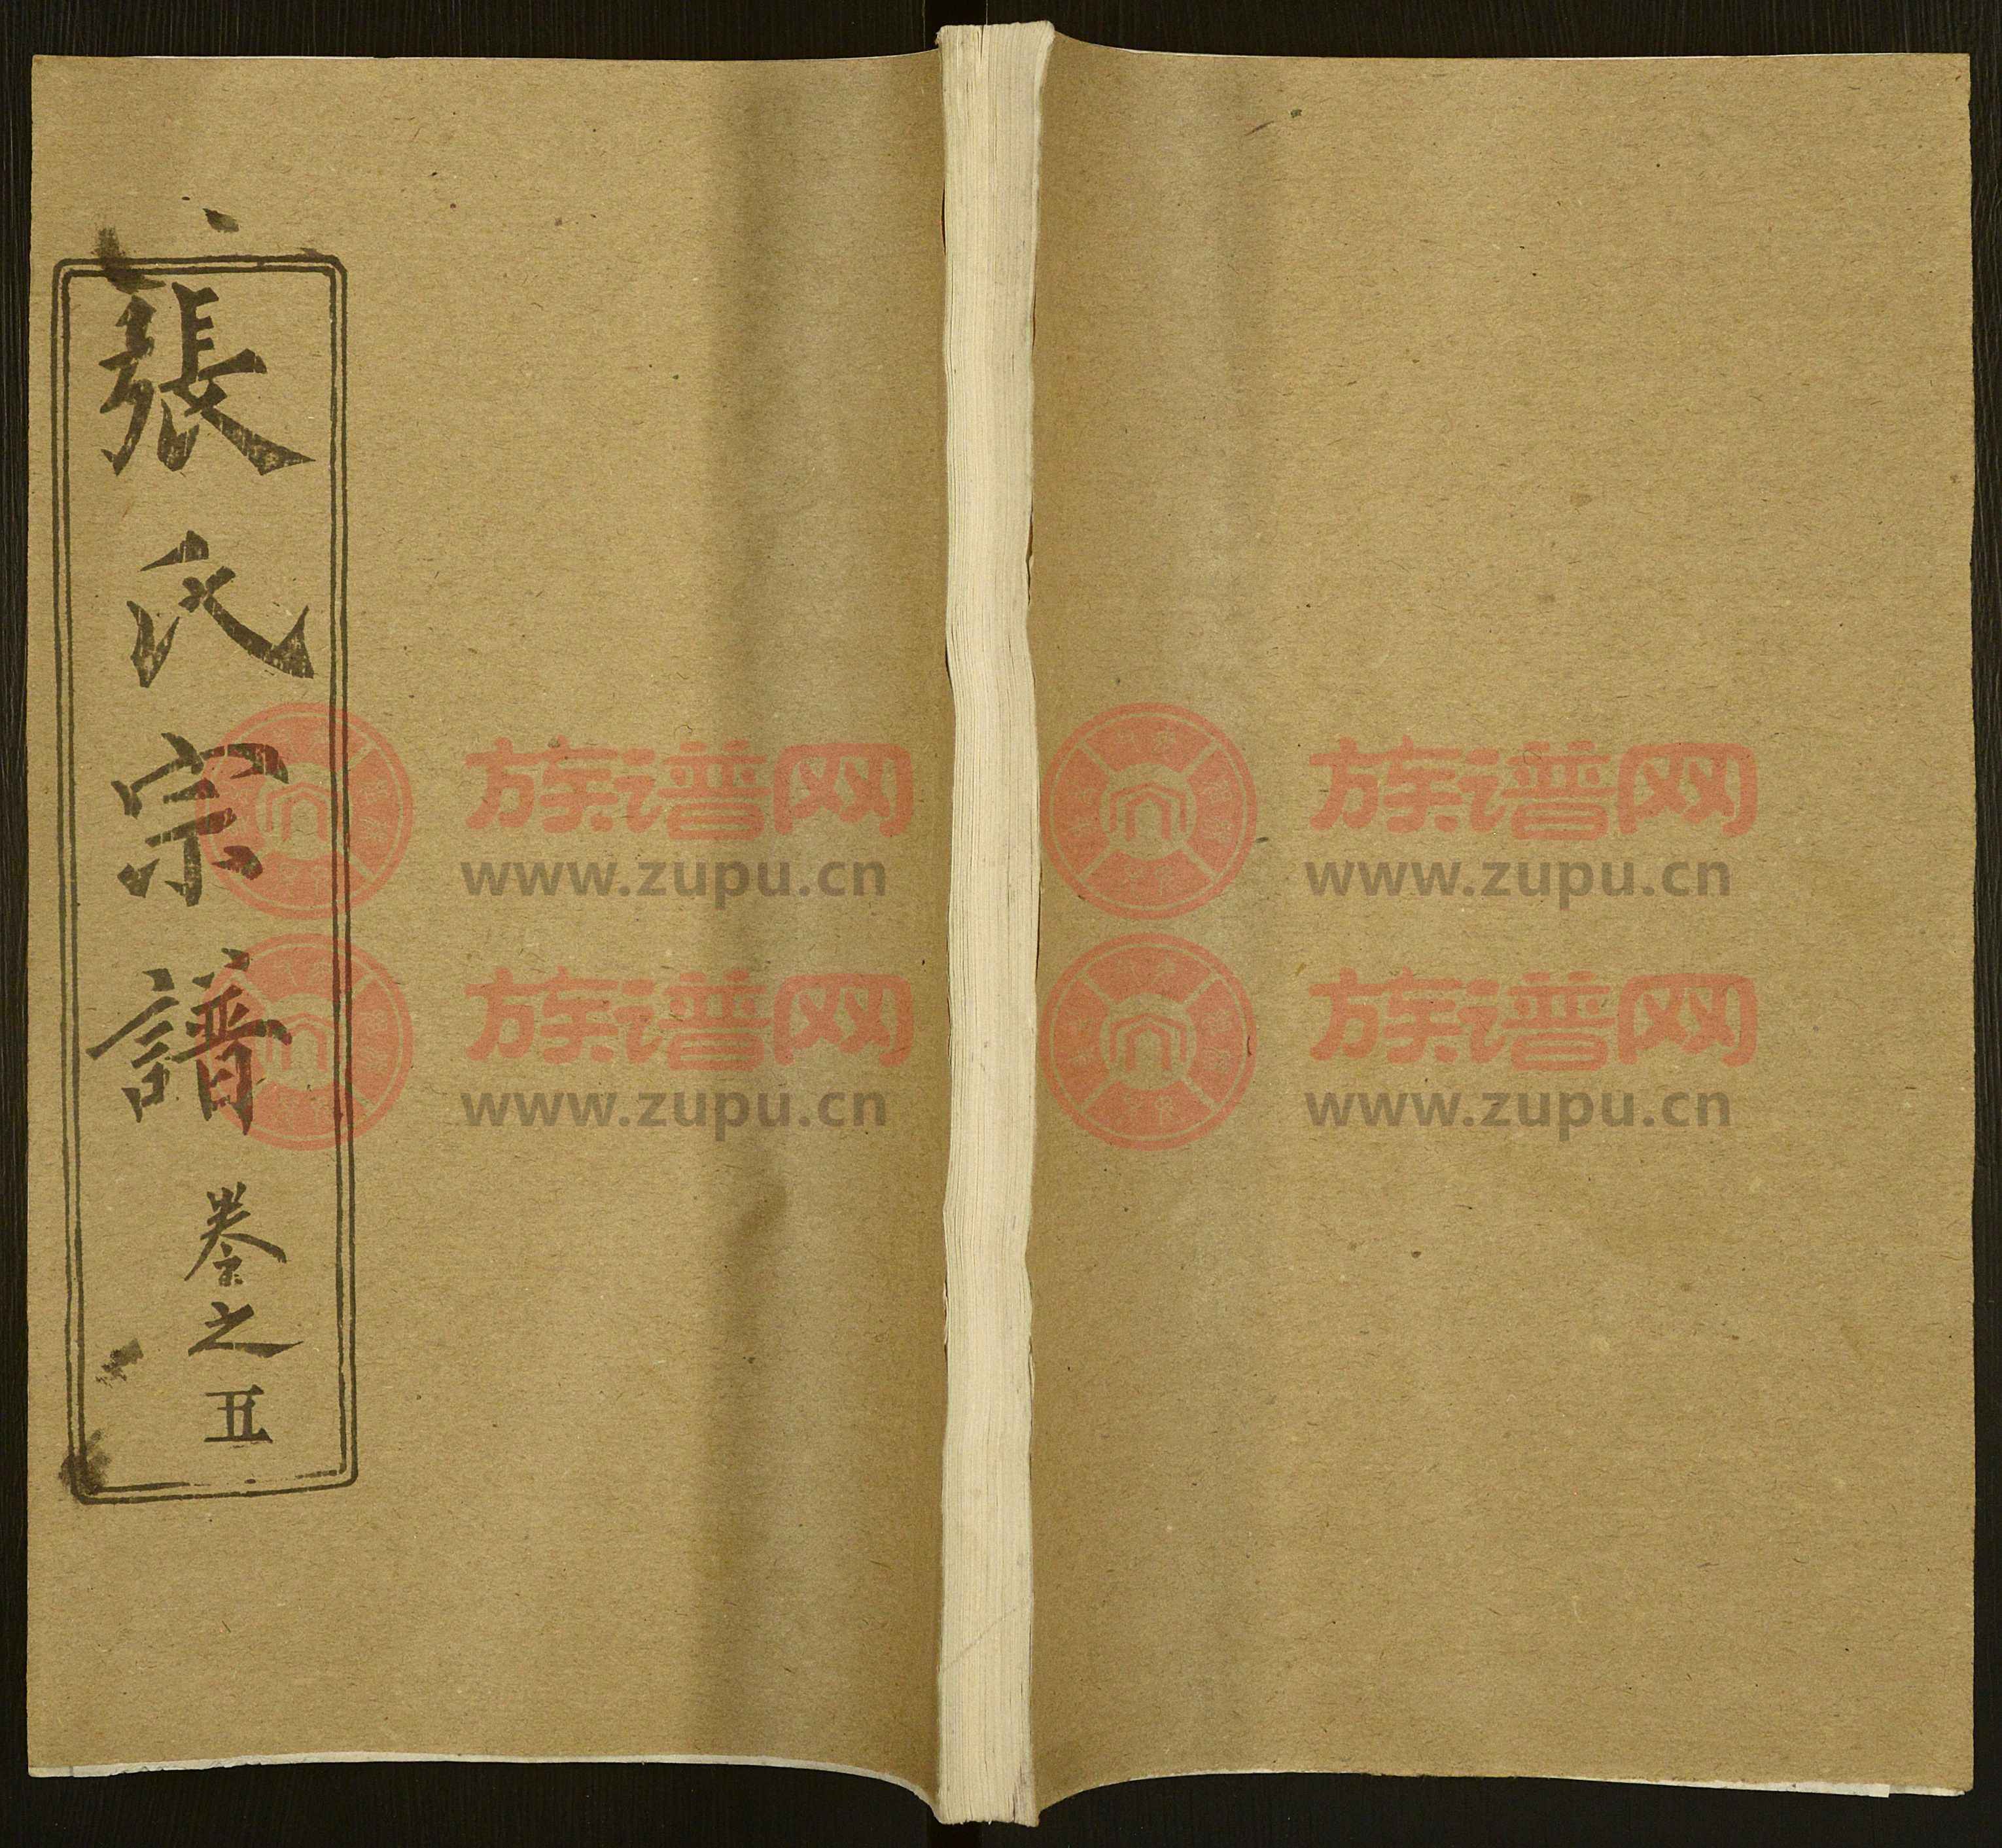 張氏宗譜
卷之五
族谱网
www.zupu.cn
族谱网
www.zupu.cn
族谱网
www.zupu.cn
族谱网
www.zupu.cn